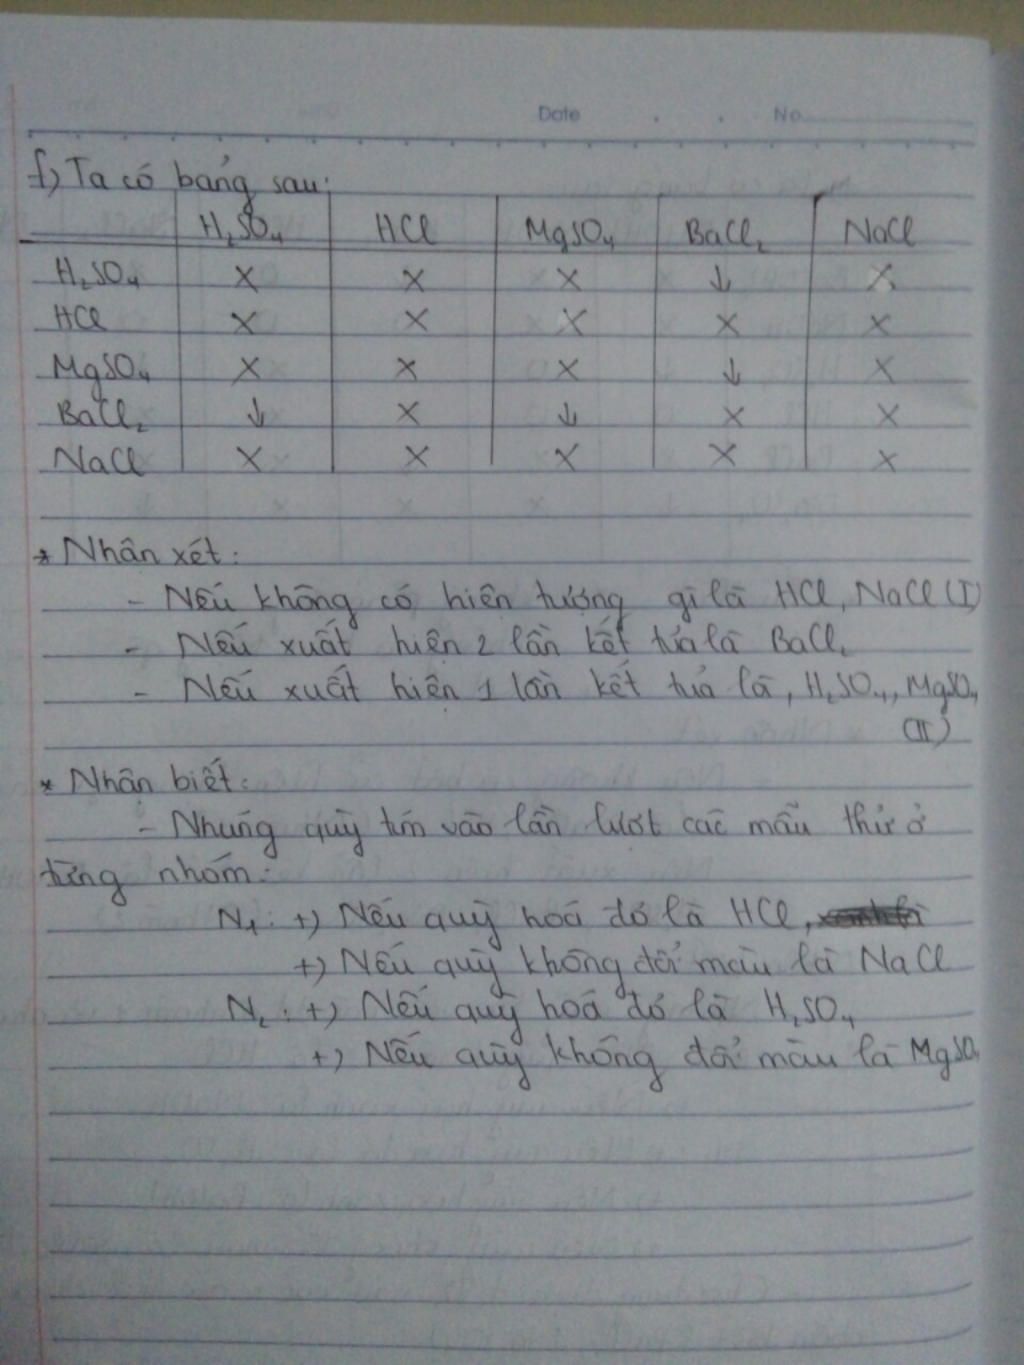 Date . . No
f) Ta có bảng sau:
H₂SO₄ HCl MgSO₄ BaCl₂ NaCl
H₂SO₄ X X X ↓ X
HCl X X X X X
MgSO₄ X X X ↓ X
BaCl₂ ↓ X ↓ X X
NaCl X X X X X
* Nhận xét:
- Nếu không có hiện tượng gì là HCl, NaCl (I)
- Nếu xuất hiện 2 lần kết tủa là BaCl₂
- Nếu xuất hiện 1 lần kết tủa là, H₂SO₄, MgSO₄
(II)
* Nhận biết:
- Nhúng quỳ tím vào lần lượt các mẫu thử ở
từng nhóm:
N₁: +) Nếu quỳ hoá đỏ là HCl,
+) Nếu quỳ không đổi màu là NaCl
N₂: +) Nếu quỳ hoá đỏ là H₂SO₄
+) Nếu quỳ không đổi màu là MgSO₄